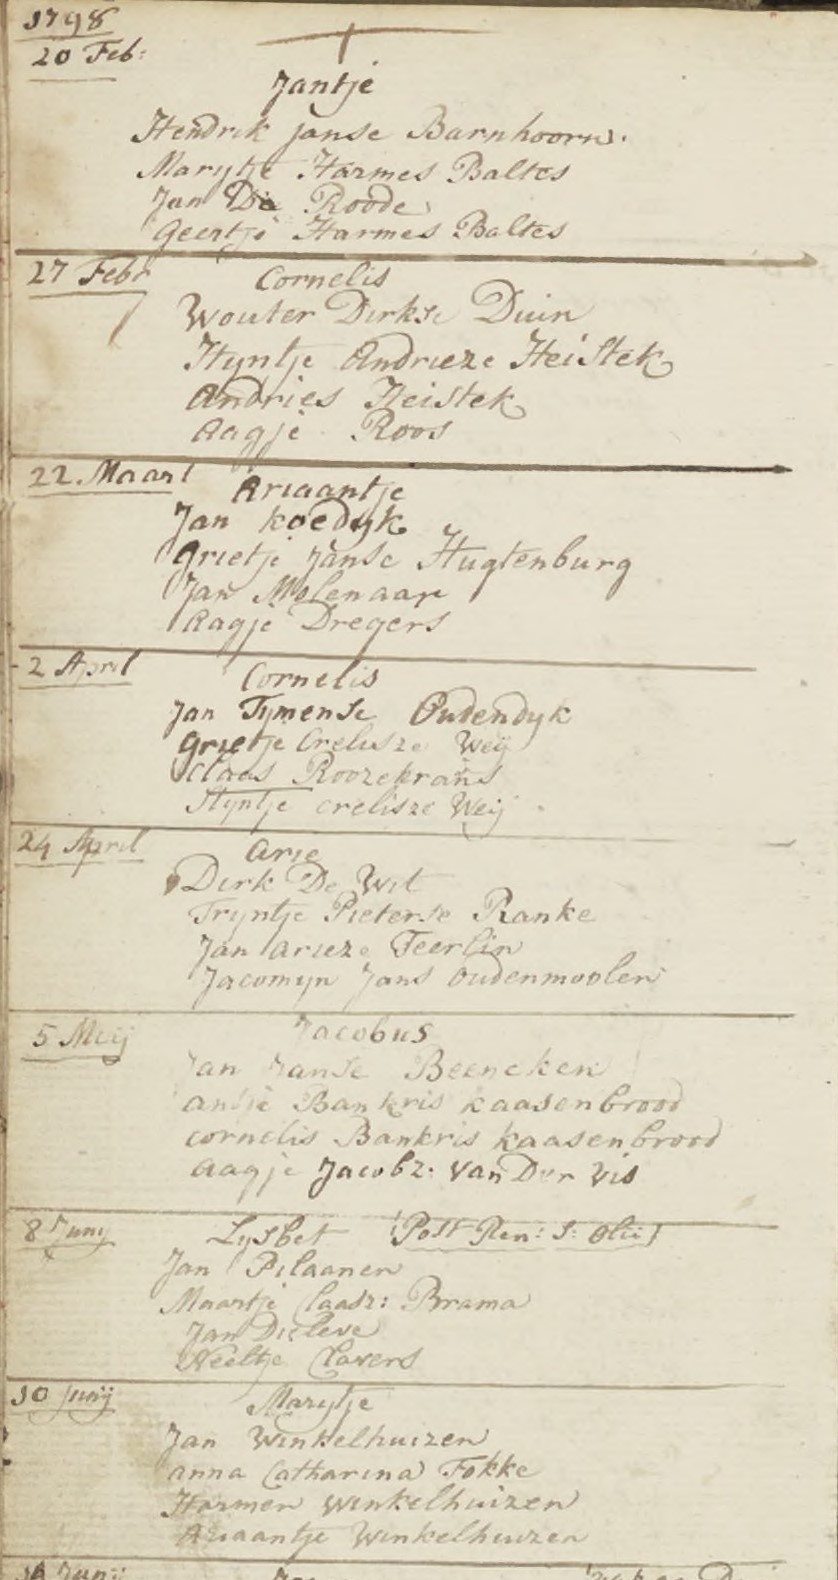 1798
20 Feb:
Jantje
Hendrik Janse Barnhoorn.
Marytje Harmes Baltes
Jan De Roode
Geertje Harmes Baltes
27 Febr
Cornelis
Wouter Dirkse Duin
Styntje Andrieze Heistek
Andries Heistek
Aagje Roos
22 Maart
Ariaantje
Jan Koedyk
Grietje Janse Hugtenburg
Jan Molenaar
Aagje Dregers
2 April
Cornelis
Jan Tymense Oudendyk
Grietje Crelisze Weij
Claas Roozekrans
Styntje Crelisze Weij
24 April
Arie
Dirk De Wit
Tryntje Pieterse Ranke
Jan Arieze Teerlin
Jacomyn Jans Oudenmoolen
5 Meij
Jacobus
Jan Janse Beencken
Antje Bankris Kaasenbrood
Cornelis Bankris Kaasenbrood
Aagje Jacobz: Van Der Vis
8 Juny
Lysbet (Post Ren: S: Olii)
Jan Pilaanen
Maartje Claasz: Brama
Jan Dieleve
Neeltje Clavers
10 Junij
Marytje
Jan Winkelhuizen
Anna Catharina Fokke
Harmen Winkelhuizen
Ariaantje Winkelhuizen
Junij